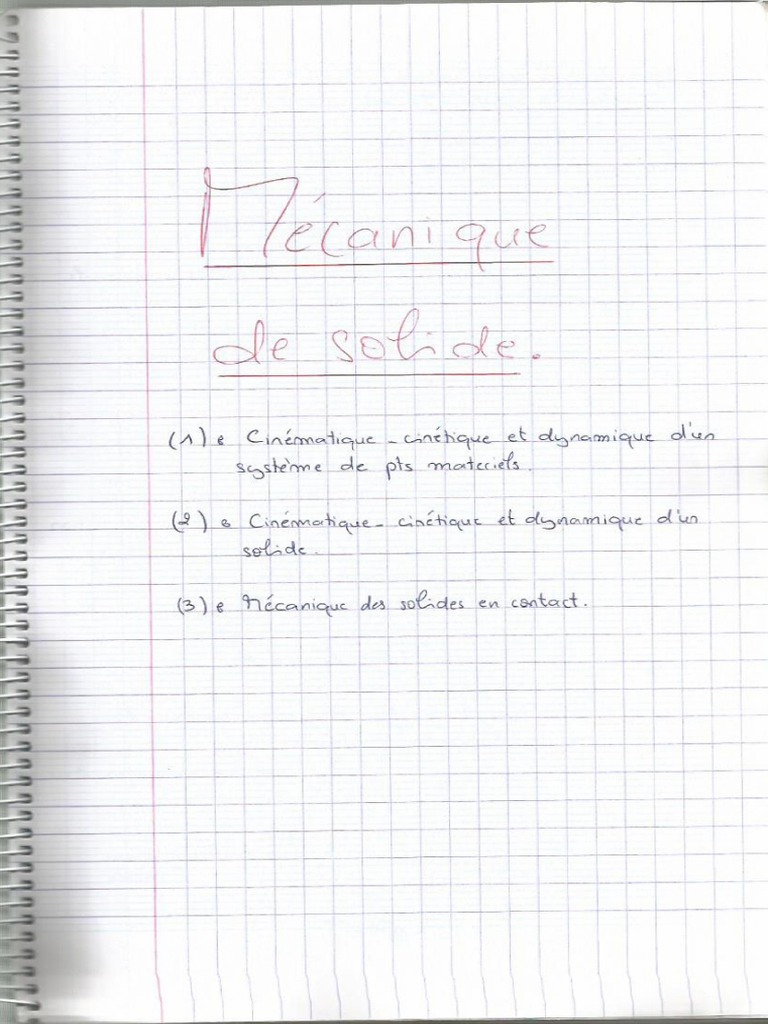 Mécanique
de solide.
(1) : Cinématique - cinétique et dynamique d'un
système de pts materiels.
(2) : Cinématique - cinétique et dynamique d'un
solide.
(3) : Mécanique des solides en contact.